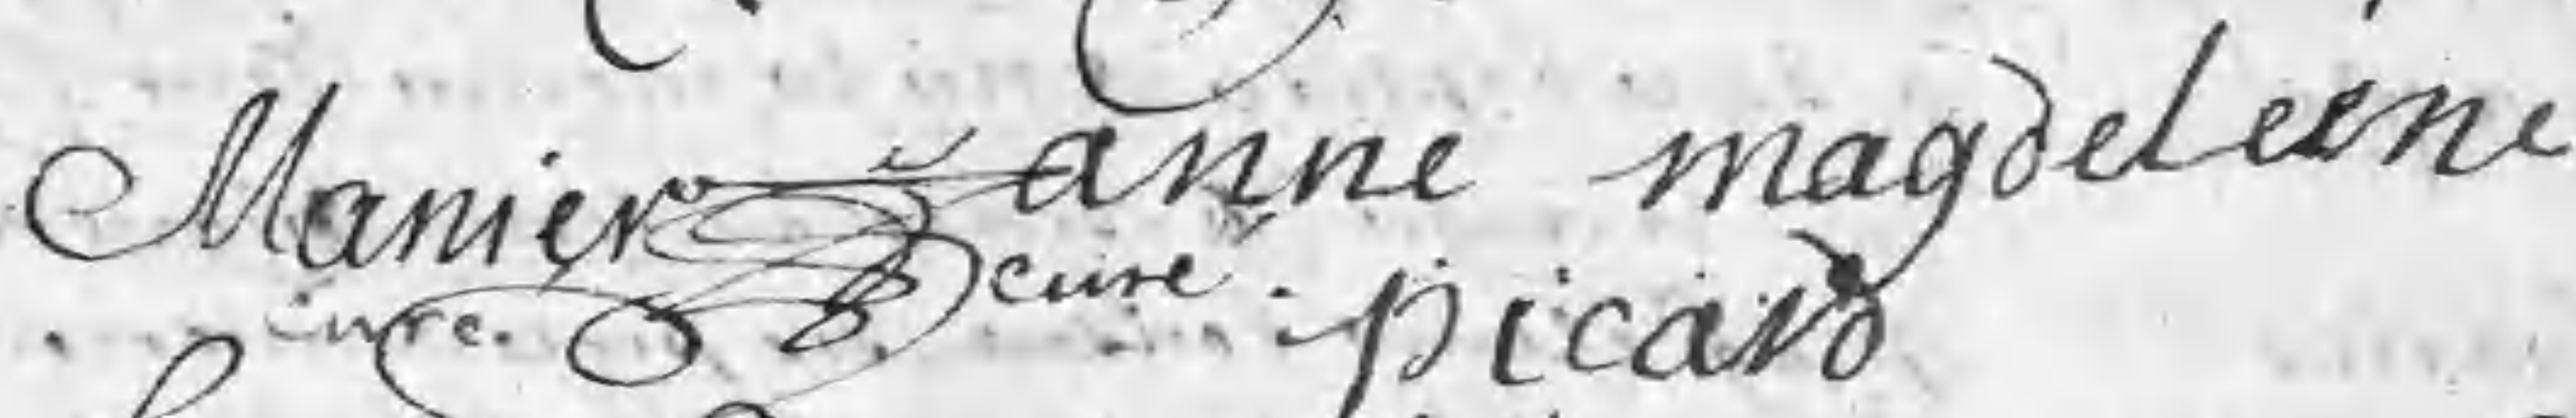 Manier anne magdeleine
curé. picard